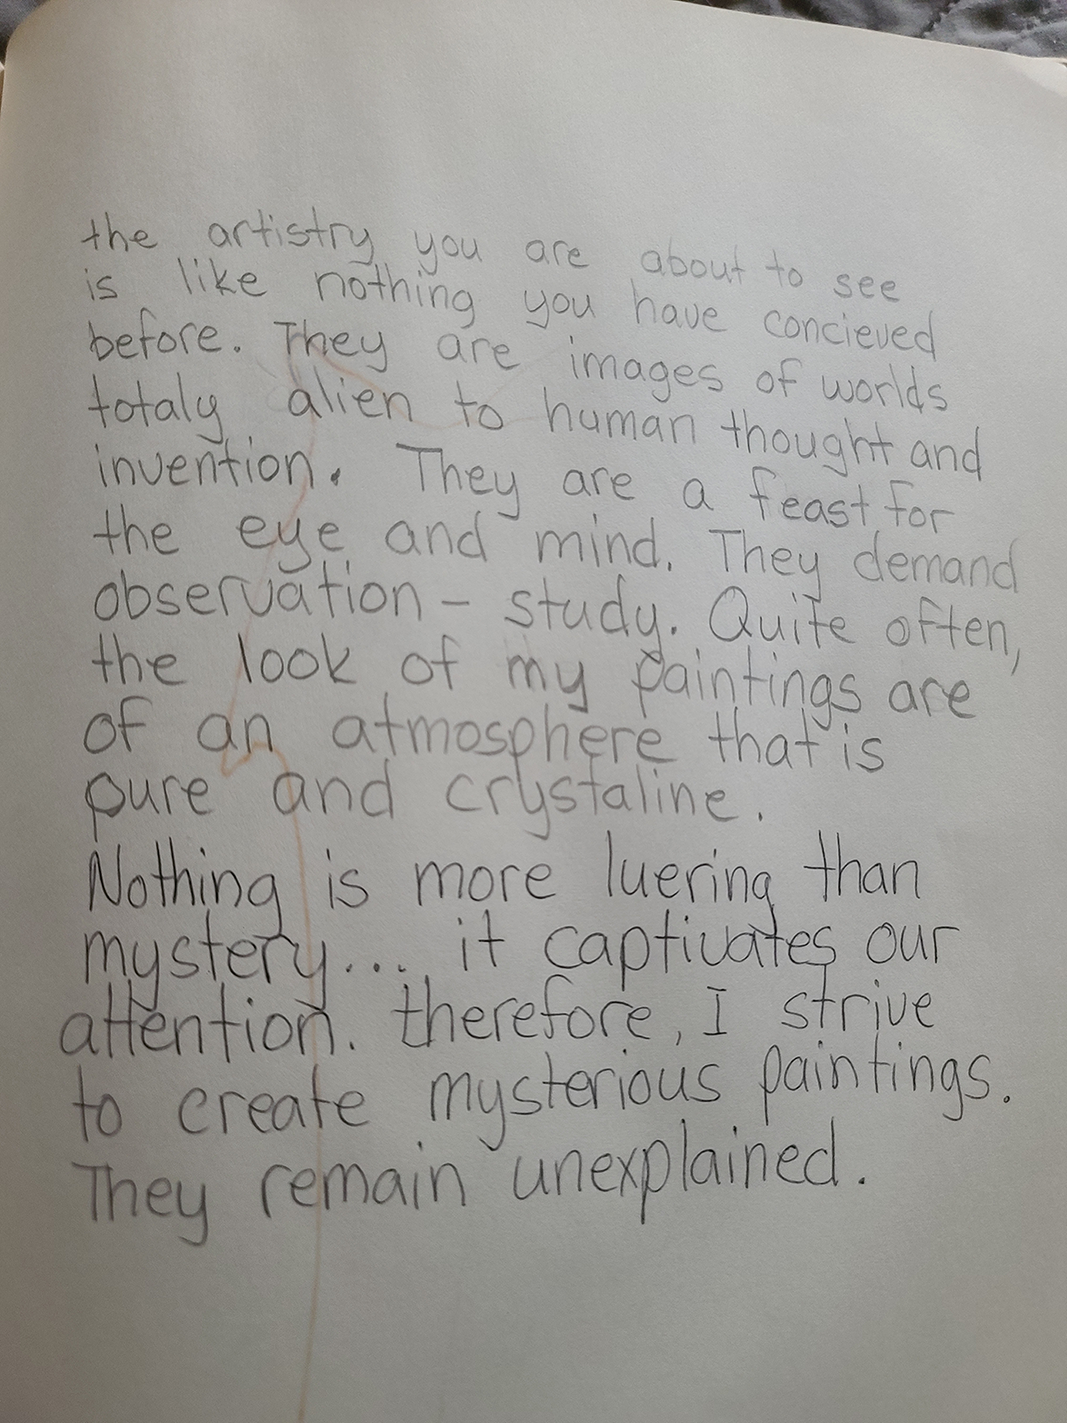 the artistry you are about to see
is like nothing you have concieved
before. They are images of worlds
totaly alien to human thought and
invention. They are a feast for
the eye and mind. They demand
observation - study. Quite often,
the look of my paintings are
of an atmosphere that is
pure and crystaline.
Nothing is more luering than
mystery... it captivates our
attention. therefore, I strive
to create mysterious paintings.
They remain unexplained.